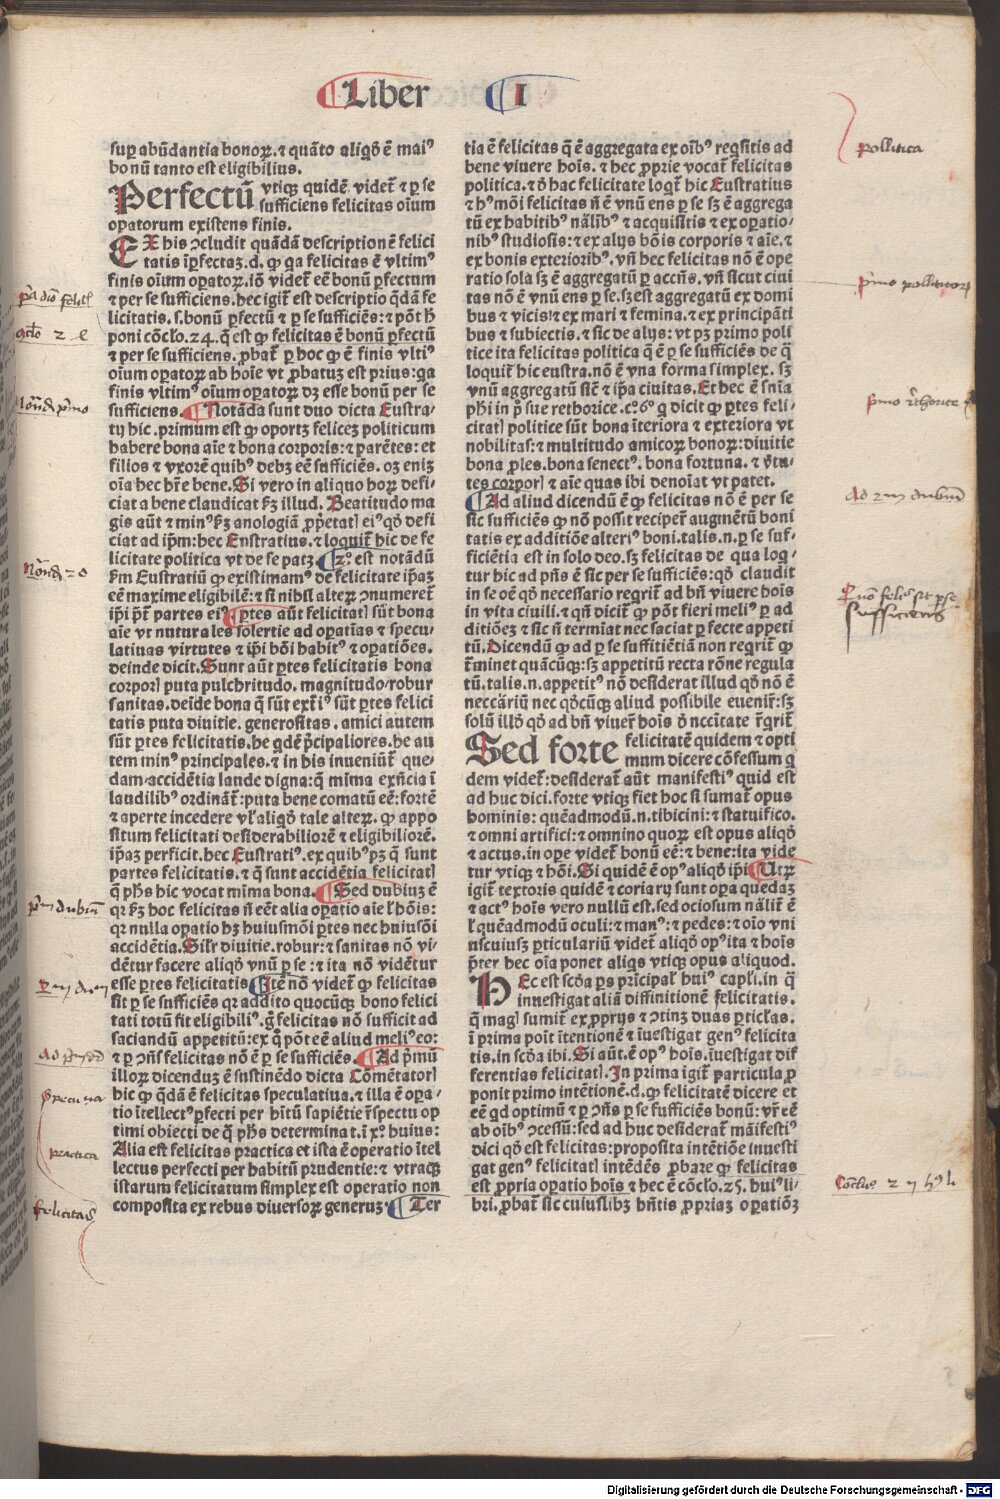 Liber I
sup abūdantia bonoꝝ. ⁊ quāto aliqđ ē maiꝰ
bonū tanto est eligibilius.
Perfectū vtiqꝫ quidē videt̄ ⁊ ꝑ se
sufficiens felicitas oīum
oꝑatorum existens finis.
EX his ɔcludit quādā descriptionē felici
tatis īꝑfectaꝫ.d. ꝙ qa felicitas ē vltimꝰ
finis oīum oꝑatoꝝ.iō videt̄ eē bonū ꝑfectum
⁊ per se sufficiens. hec igit̄ est descriptio q̄dā fe
licitatis.s.bonū ꝑfectū ⁊ ꝑ se sufficiēs: ⁊ pōt h̄
poni cōcło.24. q̄ est ꝙ felicitas ē bonū ꝑfectū
⁊ per se sufficiens. ꝓbat̄ ꝑ hoc ꝙ ē finis vltiꝰ
oīum oꝑatoꝝ ab hoīe vt ꝓbatuꝫ est prius: qa
finis vltimꝰ oīum oꝑatoꝝ dꝫ esse bonū per se
sufficiens. Notāda sunt duo dicta Eustra-
tij hic. primum est ꝙ oportꝫ feliceꝫ politicum
habere bona aīe ⁊ bona corporis: ⁊ parētes: et
filios ⁊ vxorē quibꝰ debꝫ eē sufficiēs. oꝫ eniꝫ
oīa hec hr̄e bene. Si vero in aliquo hoꝝ defi-
ciat a bene claudicat ẜꝫ illud. Beatitudo ma
gis aūt ⁊ minꝰ ẜꝫ anologiā ꝓp̄etatꝭ eiꝰ qđ defi
ciat ad ip̄m: hec Eustratius. ⁊ loquit̄ hic de fe
licitate politica vt de se patꝫ 2ꝰ. est notādū
ẜm Eustratiū ꝙ existimamꝰ de felicitate ip̄aꝫ
eē maxime eligibilē: ⁊ si nihil alteꝝ ɔnumeret̄
ip̄i ꝑt̄ partes eiꝰ ꝑtes aūt felicitatꝭ sūt bona
aīe vt naturales solertie ad oꝑatiōs ⁊ specu-
latinas virtutes ⁊ ip̄i bōi habitꝰ ⁊ oꝑatiōes.
deinde dicit. Sunt aūt ꝑtes felicitatis bona
corporꝭ puta pulchritudo. magnitudo/robur
sanitas. deīde bona q̄ sūt ext̄iꝰ sūt ꝑtes felici
tatis puta diuitie. generositas. amici autem
sūt ꝑtes felicitatis. he qdē p̄cipaliores. he au
tem minꝰ principales. ⁊ in his inueniūt̄ que-
dam accidētia laude digna: q̄ mīma exn̄cia ī
laudilibꝰ ordināt̄: puta bene comatū eē: fortē
⁊ aperte incedere vł aliqđ tale alteꝝ. ꝙ appo
situm felicitati desiderabiliorē ⁊ eligibiliorē.
ip̄aꝫ perficit. hec Eustratiꝰ. ex quibꝰ pꝫ q̄ sunt
partes felicitatis. ⁊ q̄ sunt accidētia felicitatꝭ
q̄ ph̄s hic vocat mīma bona. Sed dubiuꝫ ē
qꝛ ẜꝫ hoc felicitas n̄ eēt alia oꝑatio aīe ł hōis:
qꝛ nulla oꝑatio hꝫ huiusmōi ꝑtes nec huiusōi
accidētia. Silr̄ diuitie. robur: ⁊ sanitas nō vi-
dētur facere aliqđ vnū ꝑ se: ⁊ ita nō vidētur
esse ꝑtes felicitatis Itē nō videt̄ ꝙ felicitas
sit ꝑ se sufficiēs qꝛ addito quocūqꝫ bono felici
tati totū fit eligibiliꝰ. ḡ felicitas nō sufficit ad
saciandū appetitū: ex q̊ pōt eē aliud meliꝰ eo:
⁊ ꝑ ɔn̄s felicitas nō ē ꝑ se sufficiēs. Ad p̄mū
illoꝝ dicenduꝫ ē sustinēdo dicta Cōmētatorꝭ
hic ꝙ q̄dā ē felicitas speculatiua. ⁊ illa ē oꝑa-
tio ītellectꝰ ꝑfecti per h̄itū sapiētie īspectu op
timi obiecti de q̄ ph̄s determinat. ī xꝰ huius:
Alia est felicitas practica et ista ē operatio ītel
lectus perfecti per habitū prudentie: ⁊ vtraqꝫ
istarum felicitatum simplex est operatio non
composita ex rebus diuersoꝝ generuꝫ. Ter
tia ē felicitas q̄ ē aggregata ex oīꝰ reqsitis ad
bene viuere hoīs. ⁊ hec ꝓprie vocat̄ felicitas
politica. ⁊ đ hac felicitate loqt̄ hic Eustratius
⁊ hꝰmōi felicitas n̄ ē vnū ens ꝑ se sꝫ ē aggrega
tū ex habitibꝰ nālibꝰ ⁊ acquisitis ⁊ ex oꝑatio/
nibꝰ studiosis: ⁊ ex alijs bōis corporis ⁊ aīe. ⁊
ex bonis exterioribꝰ. vn̄ hec felicitas nō ē ope
ratio sola sꝫ ē aggregatū ꝑ accn̄s. vn̄ sicut ciui
tas nō ē vnū ens ꝑ se. sꝫ est aggregatū ex domi
bus ⁊ vicis: ⁊ ex mari ⁊ femina. ⁊ ex principāti
bus ⁊ subiectis. ⁊ sic de alijs: vt pꝫ primo poli
tice ita felicitas politica q̄ ē ꝑ se sufficiēs de q̄
loquit̄ hic eustra. nō ē vna forma simplex. sꝫ
vnū aggregatū sic̄t ⁊ ip̄a ciuitas. Et hec ē sn̄ia
ph̄i in p̄ sue rethorice. cꝰ6ꝰ q dicit ꝙ ꝑtes feli-
citatꝭ politice sūt bona īteriora ⁊ exteriora vt
nobilitas: ⁊ multitudo amicoꝝ bonoꝝ: diuitie
bona ꝓles. bona senectꝰ. bona fortuna. ⁊ v̄tu-
tes corporꝭ ⁊ aīe quas ibi denoīat vt patet.
Ad aliud dicendū ē ꝙ felicitas nō ē per se
sic sufficiēs ꝙ nō possit reciper̄ augmētū boni
tatis ex additiōe alteriꝰ boni. talis. n. ꝑ se suf-
ficiētia est in solo deo. sꝫ felicitas de qua loq̄-
tur hic ad pn̄s ē sic per se sufficiēs: qđ claudit
in se oē qđ necessario reqrit̄ ad bn̄ viuere hoīs
in vita ciuili. ⁊ qn̄ dicit̄ ꝙ pōt fieri meliꝰ ꝑ ad
ditiōeꝫ ⁊ sic n̄ termiat nec saciat ꝑfecte appeti
tū. Dicendū ꝙ ad ꝑ se suffitiētiā non reqrit̄ ꝙ
t̄minet quācūqꝫ: sꝫ appetitū recta rōne regula
tū. talis. n. appetitꝰ nō desiderat illud qđ nō ē
neccāriū nec qđcūqꝫ aliud possibile euenir̄: sꝫ
solū illđ qđ ad bn̄ viuer̄ hoīs đ nccītate r̄qrit̄
Sed forte felicitatē quidem ⁊ opti
mum dicere cōfessum q
dem videt̄: desiderat̄ aūt manifestiꝰ quid est
ad huc dici. forte vtiqꝫ fiet hoc si sumat̄ opus
hominis: quēadmodū. n. tibicini: ⁊ statuifico.
⁊ omni artifici: ⁊ omnino quoꝝ est opus aliqđ
⁊ actus. in ope videt̄ bonū eē: ⁊ bene: ita vide
tur vtiqꝫ ⁊ hōi. Si quidē ē opꝰ aliqđ ip̄i Utꝝ
igit̄ textoris quidē ⁊ coriarij sunt opa quedaꝫ
⁊ actꝰ hoīs vero nullū est. sed ociosum nālit̄ ē
ł quēadmodū oculi: ⁊ manꝰ: ⁊ pedes: ⁊ oīo vni
uscuiusꝫ ꝑticulariū videt̄ aliqđ opꝰ ita ⁊ hoīs
p̄ter hec oīa ponet aliqs vtiqꝫ opus aliquod.
HEc est scđa ꝑs pr̄īcipał huiꝰ capłi. in q̄
inuestigat aliā diffinitionē felicitatis.
q̄ magꝭ sumit̄ ex ꝓprijs ⁊ ɔtinꝫ duas ꝑticłas.
ī prima poīt ītentionē ⁊ īuestigat genꝰ felicita
tis. in scđa ibi. Si aūt. ē opꝰ hoīs. īuestigat dif
ferentias felicitatꝭ. In prima igit̄ particula ꝓ
ponit primo intētionē.d. ꝙ felicitatē dicere et
eē qd optimū ⁊ ꝑ ɔn̄s ꝑ se sufficiēs bonū: vr̄ eē
ab oībꝰ ɔcessū: sed ad huc desiderat̄ māifestiꝰ
dici qđ est felicitas: proposita intētiōe inuesti
gat genꝰ felicitatꝭ intēdēs ꝓbare ꝙ felicitas
est ꝓpria oꝑatio hoīs ⁊ hec ē cōcło. 25. huiꝰ li-
bri. ꝓbat̄ sic cuiuslibꝫ hn̄tis ꝓpriaꝫ oꝑatiōꝫ
pollitica
p̄mo polliticorꝭ
p̄mo rethorice
Ad 2m dubiū
Quō felicitas sit ꝑ se
sufficiens
p̄m dubiū
practica
felicitas
Digitalisierung gefördert durch die Deutsche Forschungsgemeinschaft - DFG